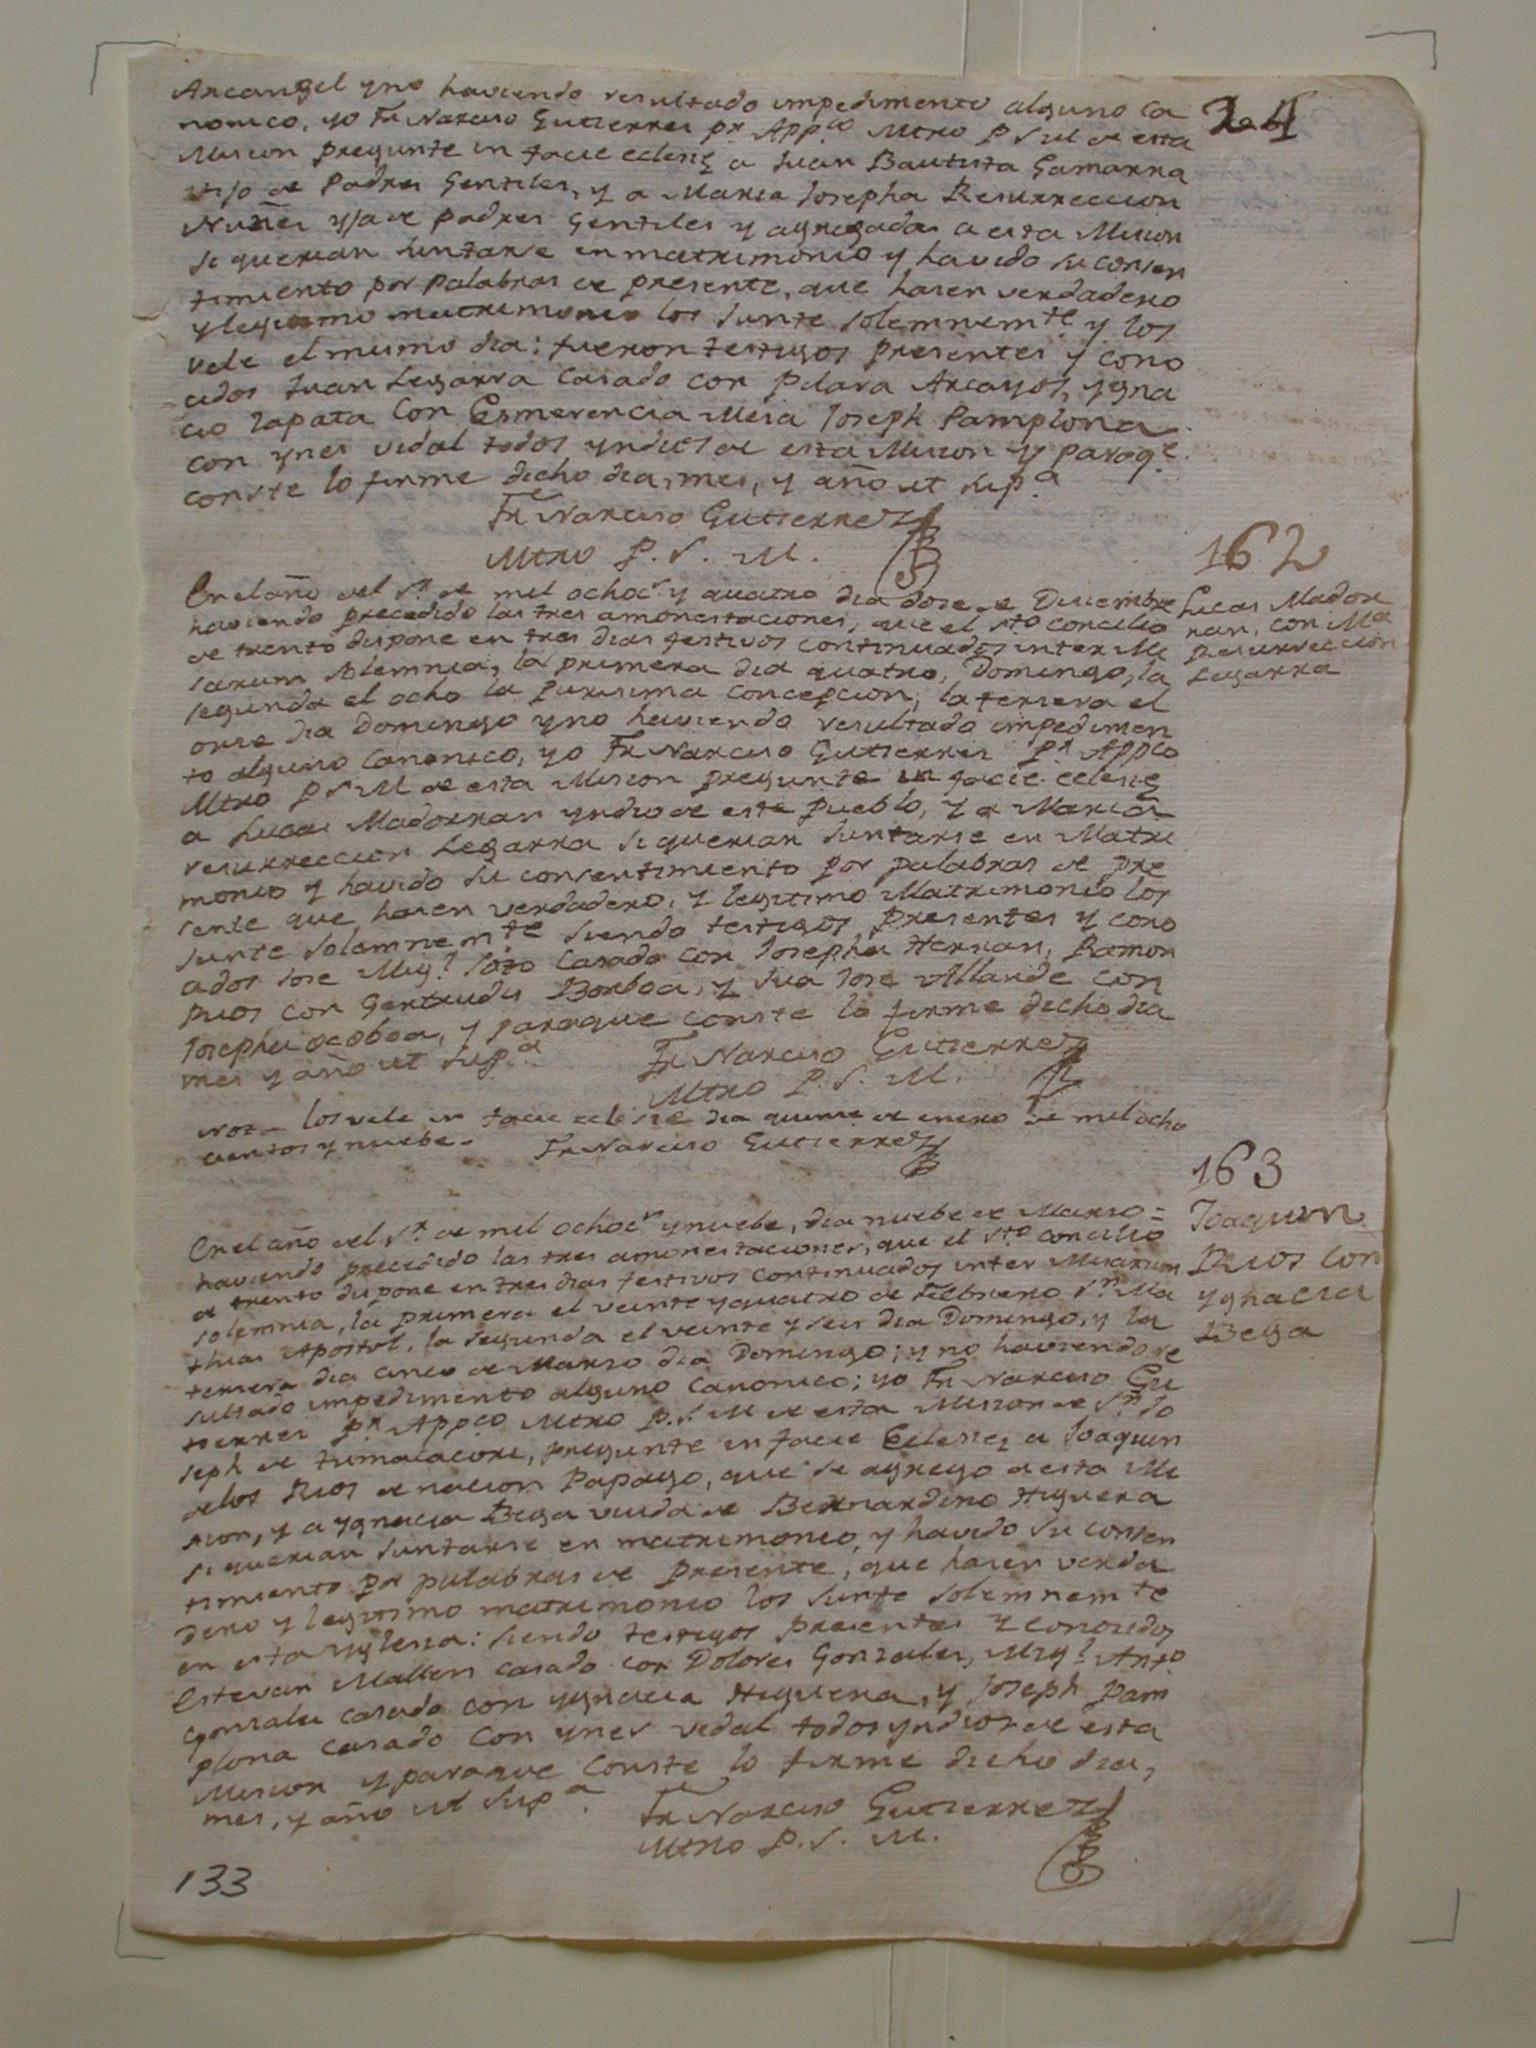 Arcangel y no haviendo resultado impedimento alguno ca
24
nonico, yo Fr Narciso Gutierres Pr. Appco Mtro P S M de esta
Mision pregunte in facie eclesie a Juan Bautista Gamarra
hijo de Padres Gentiles, y a Maria Josepha Resurreccion
Nuñes yja de padres Gentiles y agregadas a esta Mision
si querian Juntarse en matrimonio y havido su consen
timiento por palabras de presente, que hasen verdadero
y legitimo matrimonio los Junte solemnemte y los
vele el mismo dia: fueron testigos presentes y cono
cidos Juan Legarra casado con Pilara Arcayos, ygna
cio Zapata Con Esmerencia Mesa Joseph Pamplona
con ynes vidal todos yndios de esta Mision y paraqe
conste lo firme dicho dia, mes, y año ut supa
Fr Narciso Gutierrez
Mtro P. S. M.
162
Lucas Mador
ran, con Ma
Resurreccion
Legarra
En el año del Sr. de mil ochocs y quatro dia dose de Disiembre
haviendo precedido las tres amonestaciones, que el Sto Concilio
de trento dispone en tres dias festivos continuados inter Mi
sarum solemnia, la primera dia quatro, Domingo, la
segunda el ocho la Purisima Concepcion, la tersera el
onse dia Domingo y no haviendo resultado impedimen
to alguno Canonico, yo Fr Narciso Gutierres Pr. Appco
Mtro P S M de esta Mision pregunte in facie eclesie
a Lucas Madorran yndio de este pueblo, y a Maria
resurreccion Legarra si querian Juntarse en Matri
monio y havido su consentimiento por palabras de pre
sente que hasen verdadero, y legitimo Matrimonio los
Junte solemnemte siendo testigos presentes y cono
cidos Jose Migl Soto Casado con Josepha Hernan, Ramon
Rios con Gertrudis Borboa, y Jua Jose Allande con
Josepha ocoboa, y paraque conste lo firme dicho dia
mes y año ut supa
Fr Narciso Gutierrez
Mtro P. S. M.
nota los vele in facie eclesie dia quinse de enero de mil ocho
cientos y nuebe.
Fr Narciso Gutierrez
163
Joaquin
Rios con
ygnacia
Bega
En el año del Sr. de mil ochocs y nuebe, dia nuebe de Marso =
haviendo precedido las tres amonestaciones, que el Sto concilio
de trento dispone en tres dias festivos continuados inter Misarum
solemnia, la primera el veinte y quatro de Febrero Sn Ma
thias Apostol, la segunda el veinte y seis dia Domingo, y la
tersera dia cinco de Marso dia Domingo; y no haviendo re
sultado impedimento alguno canonico; yo Fr Narciso Gu
tierres Pr. Appco Mtro P. S. M de esta Mision de Sn Jo
seph de tumacacori, pregunte in facie Eclesie a Joaquin
de los Rios de nacion Papago, que se agrego a esta Mi
sion, y a ygnacia Bega viuda de Bernardino Higuera
si querian Juntarse en matrimonio, y havido su consen
timiento por palabras de presente, que hasen verda
dero y legitimo matrimonio los Junte solemnemte
en esta yglesia: siendo testigos presentes y conosidos
Estevan Mallen casado con Dolores Gonzales, Migl. Anto.
Gonzales casado con ygnacia Higuera, y Joseph Pam
plona casado con ynes vidal todos yndios de esta
Mision y paraque conste lo firme dicho dia,
mes, y año ut supa
Fr Narciso Gutierrez
Mtro P. S. M.
133